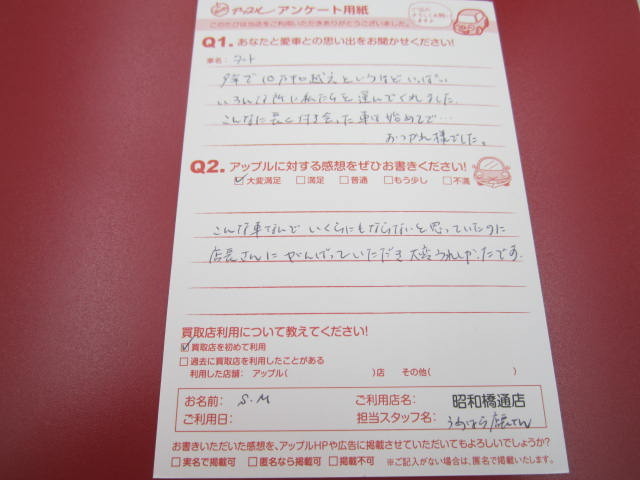 アップル アンケート用紙
このたびは当店をご利用いただきありがとうございました。
Q1. あなたと愛車との思い出をお聞かせください!
車名:
越えというほどいっぱい
いろんな所に私たちを運んでくれました。
こんなに長く付き合った車は始めてで…
おつかれ様でした。
Q2. アップルに対する感想をぜひお書きください!
☑大変満足 □満足 □普通 □もう少し □不満
こんな車なんでいくらにもならないと思っていたのに
店長さんにがんばっていただき大変うれしかったです。
買取店利用について教えてください!
☑買取店を初めて利用
□過去に買取店を利用したことがある
利用した店舗: アップル( )店 その他( )
お名前: S.M ご利用店名: 昭和橋通店
ご利用日: 担当スタッフ名:
お書きいただいた感想を、アップルHPや広告に掲載させていただいてもよろしいでしょうか?
□実名で掲載可 □匿名なら掲載可 □掲載不可 ※ご記入がない場合は、匿名で掲載いたします。